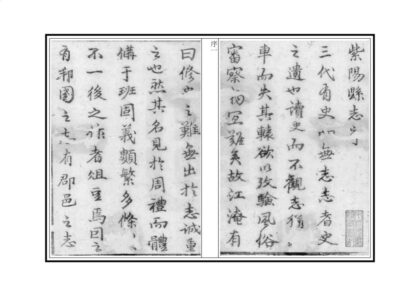 紫陽縣志序
三代有史而無志志者史
之遺也讀史而不觀志猶
車而失其轄欲以攷驗風俗
審察物宜難矣故江淹有
序
曰修史之難無出於志誠重
之也然其名見於周禮而體
備于班固義類繁多條
不一後之作者俎豆焉因之
有郡國之志有郡邑之志